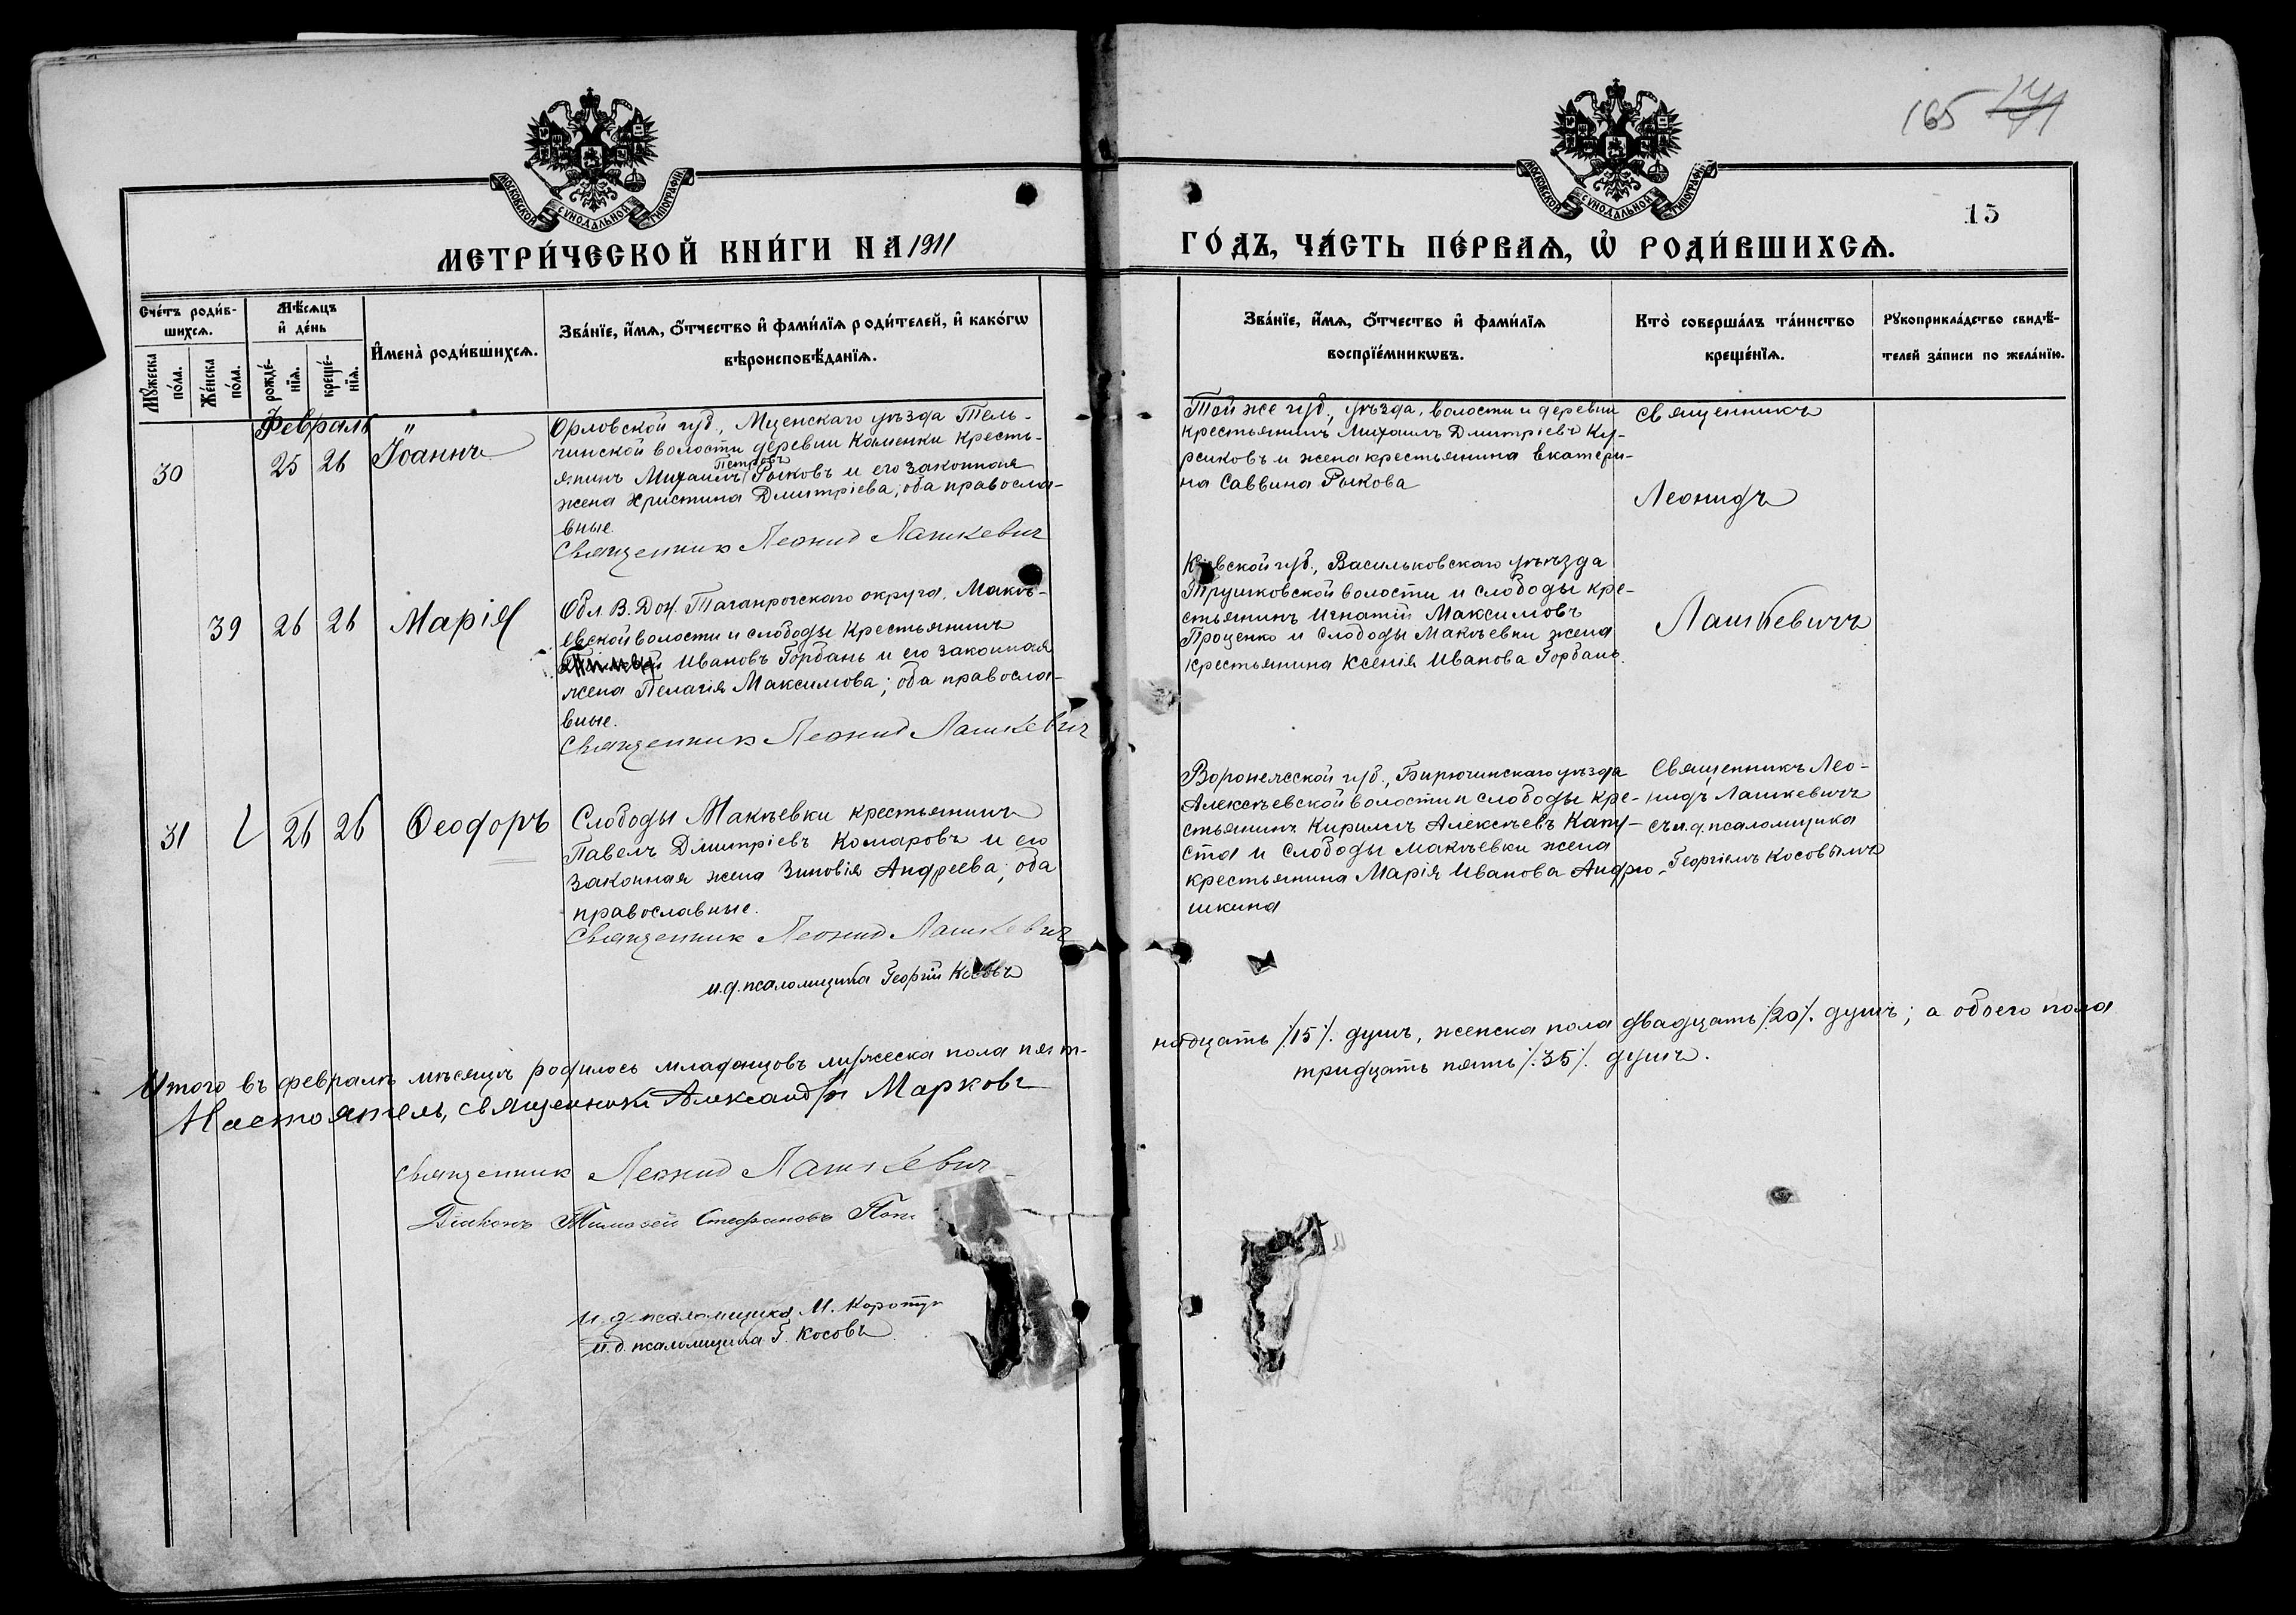 165 171
МОСКОВСКОЙ СѴНОДАЛЬНОЙ ТИПОГРАФІИ
МОСКОВСКОЙ СѴНОДАЛЬНОЙ ТИПОГРАФІИ
15
МЕТРИ́ЧЕСКОЙ КНИ́ГИ НА 1911
ГО́ДЪ, ЧА́СТЬ ПЕ́РВАѦ, Ѡ҆ РОДИ́ВШИХСѦ.
Сче́тъ роди́в-
шихсѧ.
Мѣ́сѧцъ
и҆ де́нь
Мꙋ́жеска
по́ла.
Же́нска
по́ла.
рожде́-
нїѧ.
креще́-
нїѧ.
И҆мена̀ роди́вшихсѧ.
Зва́нїе, и҆́мѧ, ѻ҆́тчество и҆ фами́лїѧ роди́телей, и҆ како́гѡ
вѣроисповѣ́данїѧ.
Зва́нїе, и҆́мѧ, ѻ҆́тчество и҆ фами́лїѧ
воспрїе́мникѡвъ.
Кто̀ соверша́лъ та́инство
креще́нїѧ.
Рꙋкоприкла́дство свидѣ́-
телей за́писи по жела́нїю.
Февраль
30 25 26 Іоаннъ
Орловской губ., Мценскаго уѣзда Тель-
чинской волости деревни Каменки кресть-
Петровъ
янинъ Михаилъ Рыковъ и его законная
жена Христина Дмитріева; оба правосла-
вные.
Священник Леонид Лашкевич
Той же губ., уѣзда, волости и деревни
крестьянинъ Михаилъ Дмитріевъ Ку-
рсиковъ и жена крестьянина Екатери-
на Саввина Рыкова
Священникъ
Леонидъ
Лашкевичъ
39 26 26 Марія
Обл. В. Дон. Таганрогскаго округа, Макѣ-
евской волости и слободы крестьянинъ
Ивановъ Горбань и его законная
жена Пелагія Максимова; оба правосла-
вные.
Священник Леонид Лашкевич
Кіевской губ., Васильковскаго уѣзда
Трушковской волости и слободы кре-
стьянинъ Игнатій Максимовъ
Проценко и слободы Макѣевки жена
крестьянина Ксенія Иванова Горбань.
31 26 26 Ѳеодоръ
Слободы Макѣевки крестьянинъ
Павелъ Дмитріевъ Комаровъ и его
законная жена Зиновія Андреева; оба
православные.
Священник Леонид Лашкевич
и.д. псаломщика Георгій Косовъ
Воронежской губ., Бирючинскаго уѣзда
Алексѣевской волости и слободы кре-
стьянинъ Кириллъ Алексѣевъ Капу-
ста и слободы Макѣевки жена
крестьянина Марія Иванова Андрю-
шкина
Священникъ Лео-
нидъ Лашкевичъ
съ и.д. псаломщика
Георгіемъ Косовымъ
Итого въ февралѣ мѣсяцѣ родилось младенцовъ мужеска пола пят-
надцать /15/. душъ, женска пола двадцать /20/. душъ; а обоего пола
тридцать пять /.35/. душъ.
Настоятель, священникъ Александръ Марковъ
Священник Леонид Лашкевич
Діаконъ Тимоѳей Стефановъ Поп
и.д. псаломщика М. Коротун
и.д. псаломщика Г. Косовъ